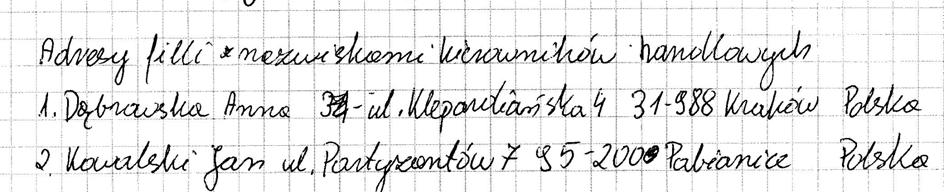 Adresy filii z nazwiskami kierowników handlowych
1. Dąbrowska Anna ul. Klepardiańska 4 31-988 Kraków Polska
2. Kowalski Jan ul. Partyzantów 7 95-200 Pabianice Polska